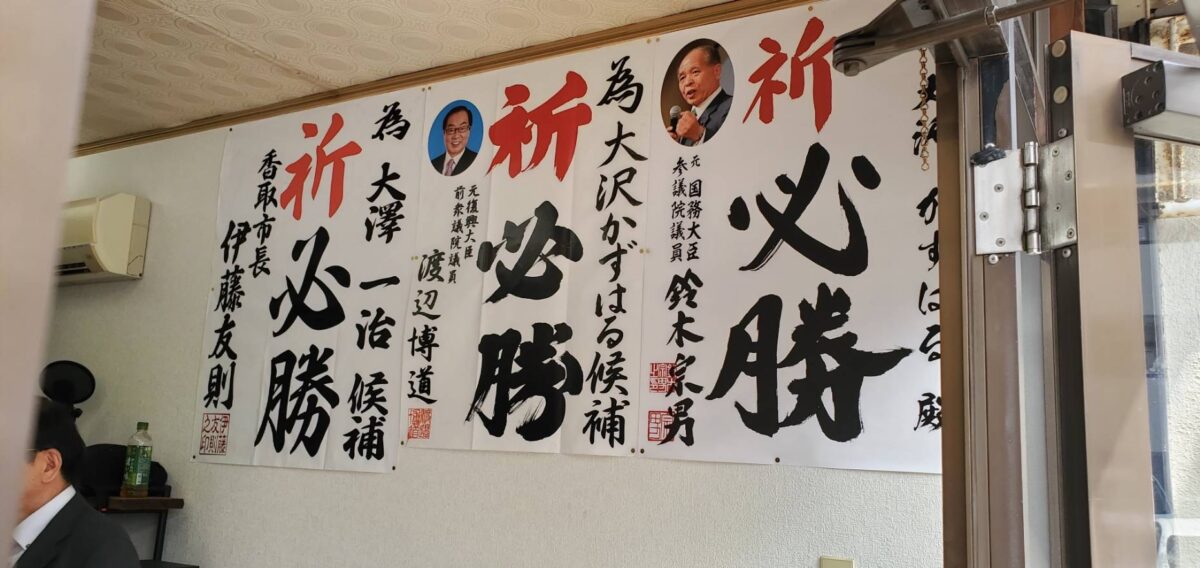 祈
必勝
かずはる殿
元 国務大臣
参議院議員
鈴木宗男
為 大沢かずはる候補
祈
必勝
元復興大臣
前衆議院議員
渡辺博道
為 大澤 一治 候補
祈
必勝
香取市長
伊藤友則
伊藤
友則
之印